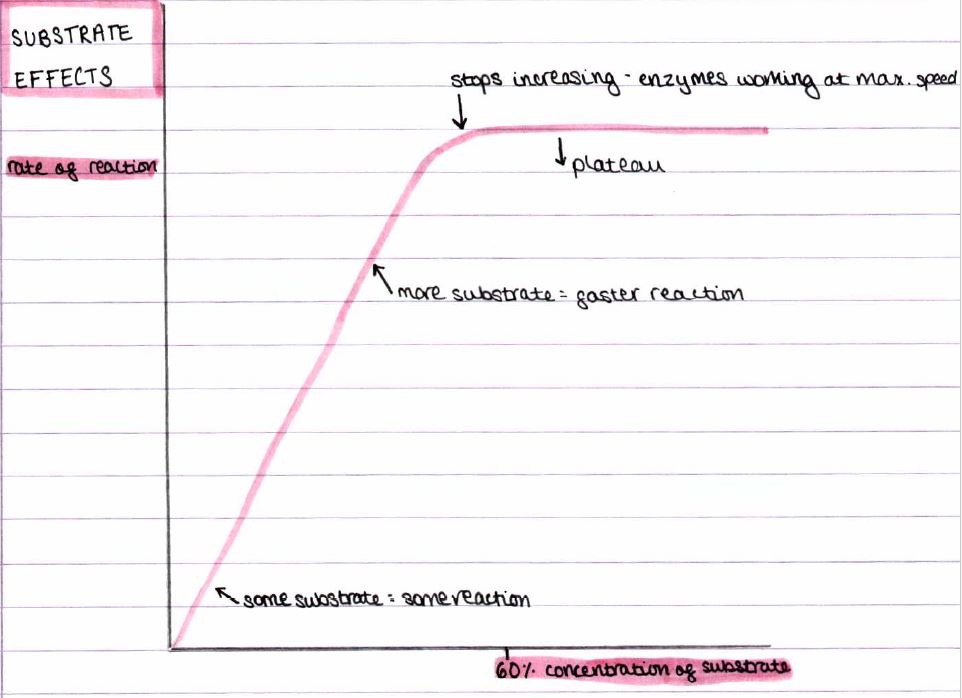 SUBSTRATE
EFFECTS
stops increasing - enzymes working at max. speed
rate of reaction
plateau
more substrate = faster reaction
some substrate = some reaction
60% concentration of substrate